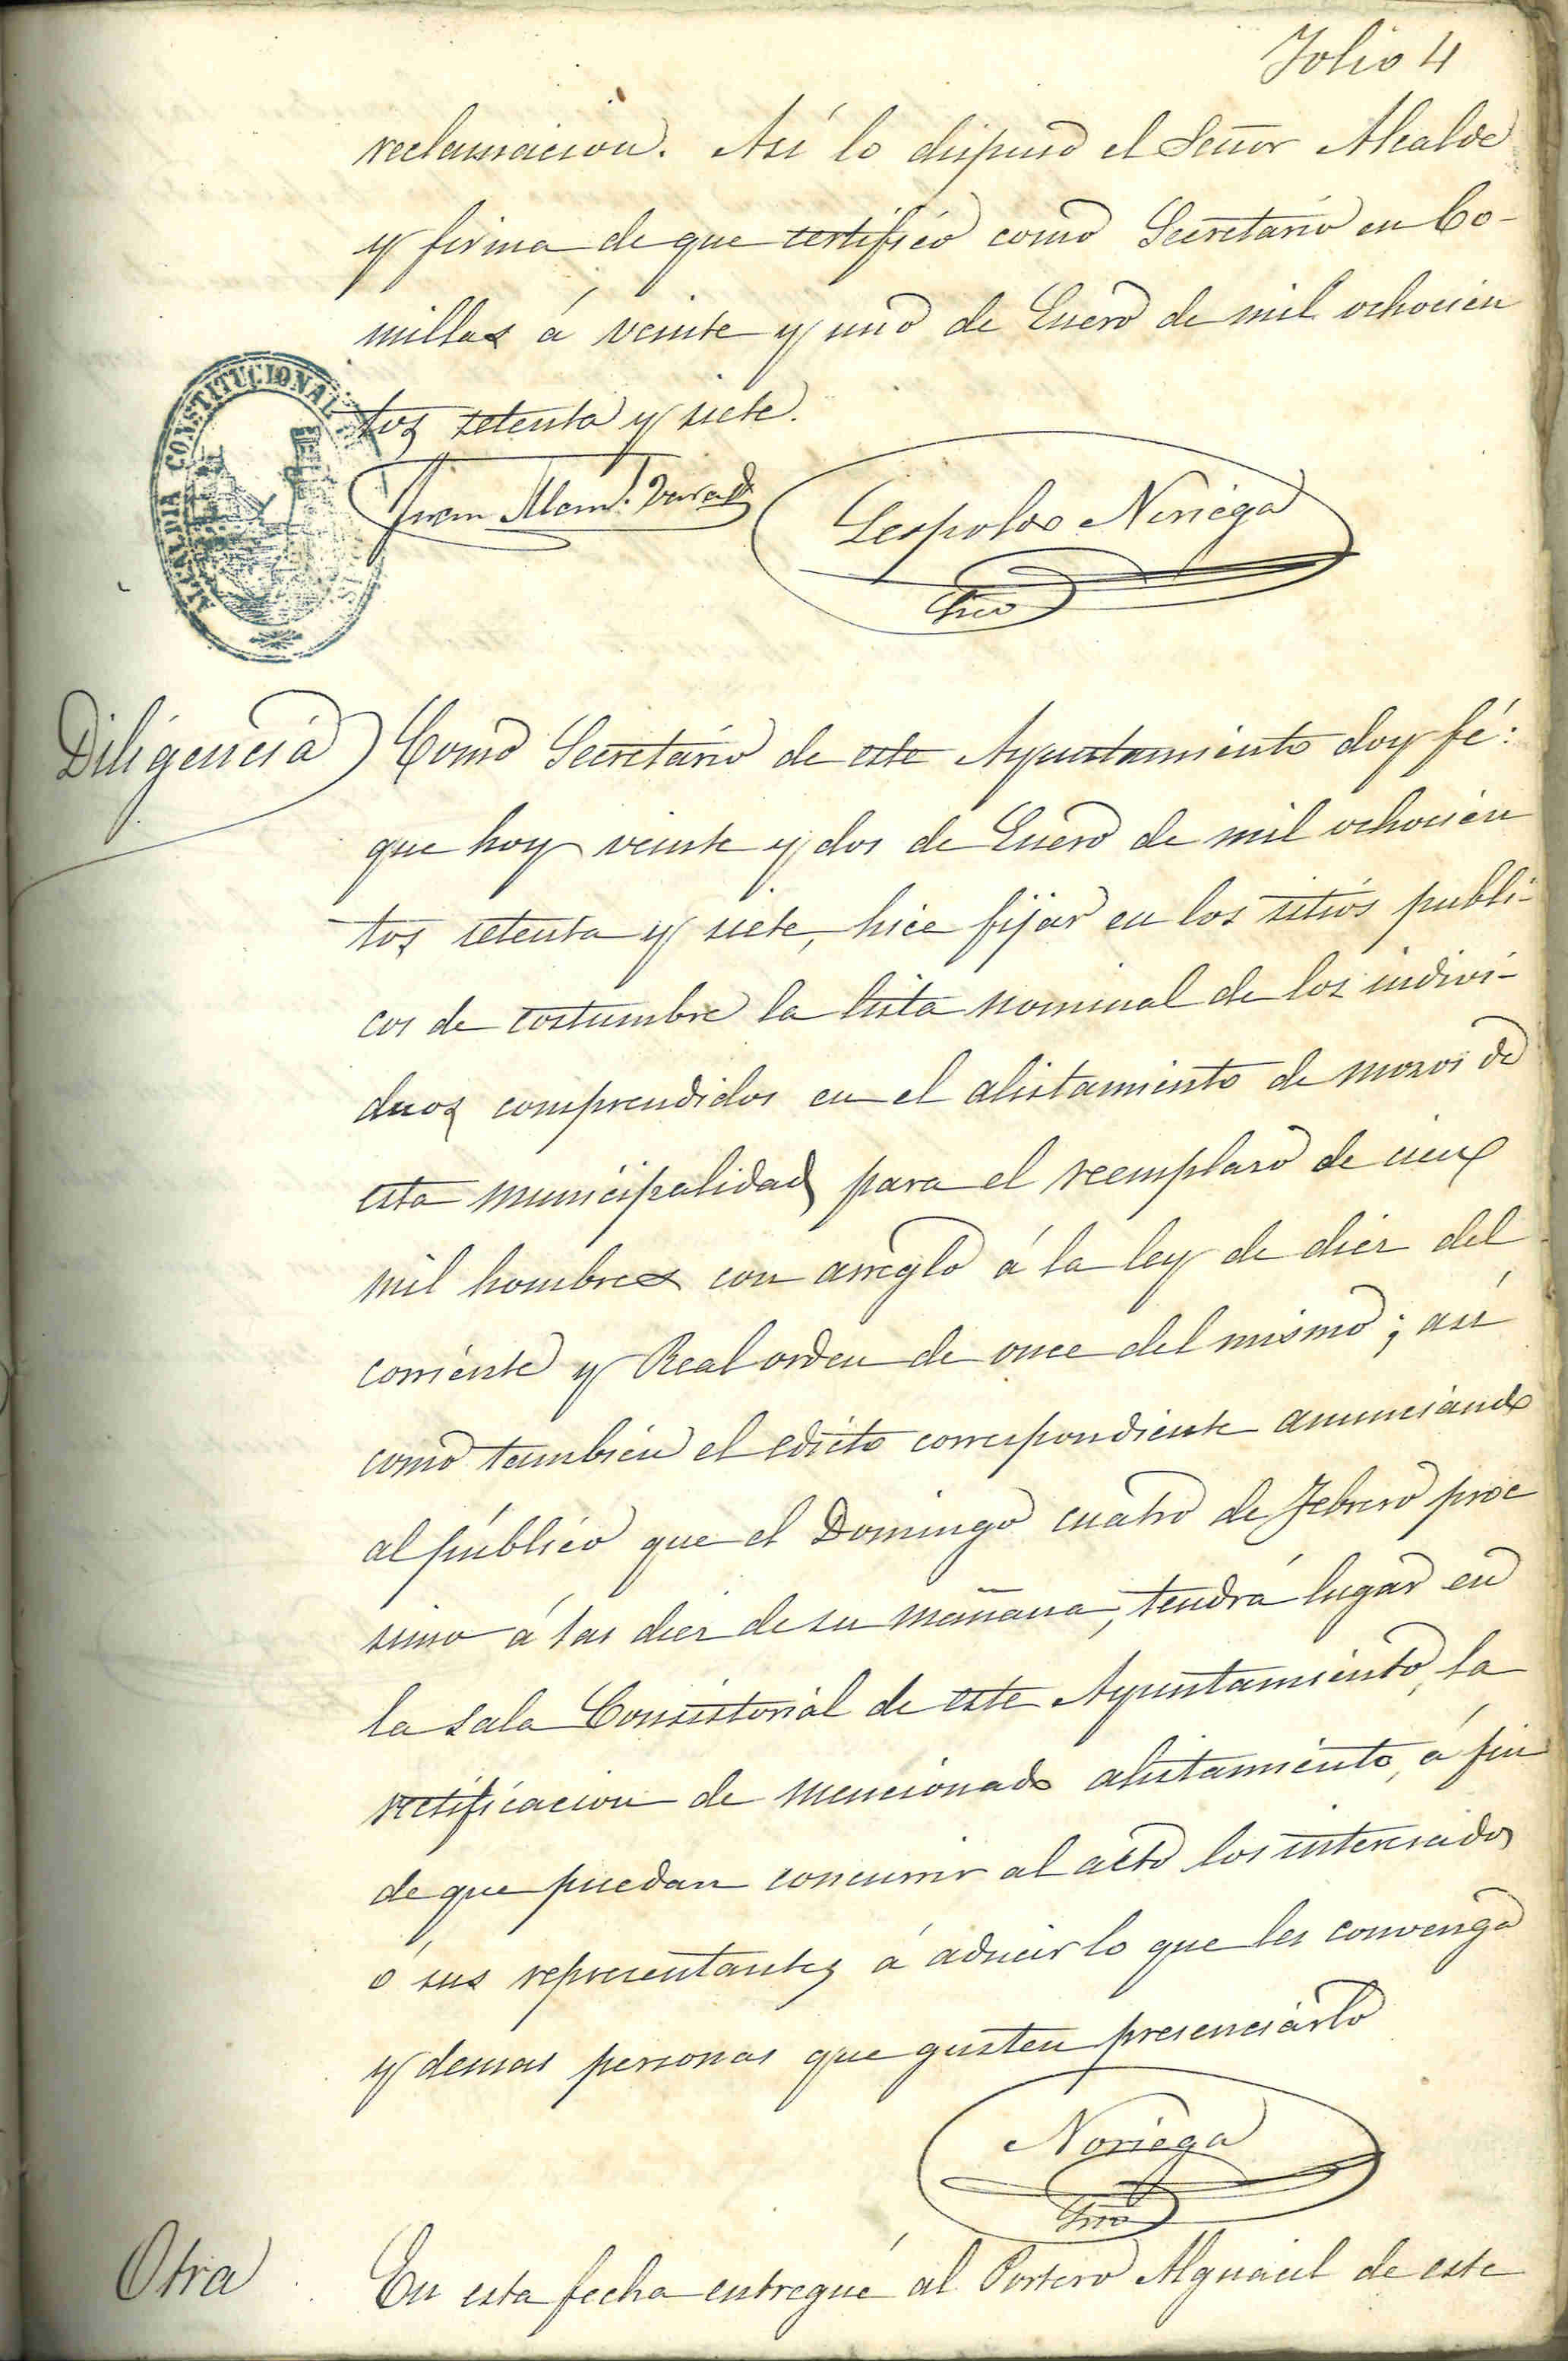 Folio 4
reclamacion. Así lo dispuso el Señor Alcalde
y firma de que certifico como Secretario en Co-
millas á veinte y uno de Enero de mil ochocien
tos setenta y siete.
ALCALDIA CONSTITUCIONAL
Juan
Leopoldo Noriega
Srio
Diligencia
Como Secretario de este Ayuntamiento doy fé:
que hoy veinte y dos de Enero de mil ochocien
tos setenta y siete, hice fijar en los sitios publi-
cos de costumbre la lista nominal de los indivi-
duos comprendidos en el alistamiento de mozos de
esta municipalidad para el reemplaso de cien
mil hombres con arreglo á la ley de diez del
corriente y Real orden de once del mismo; así
como tambien el edicto correspondiente anunciando
al público que el Domingo cuatro de Febrero proc
simo á las diez de su mañana, tendrá lugar en
la sala Consistorial de este Ayuntamiento, la
rectificacion de mencionado alistamiento, á fin
de que puedan concurrir al acto los interesados
ó sus representantes á aducir lo que les convenga
y demas personas que gusten presenciarlo
Noriega
Srio
Otra
En esta fecha entregué al Portero Alguacil de este